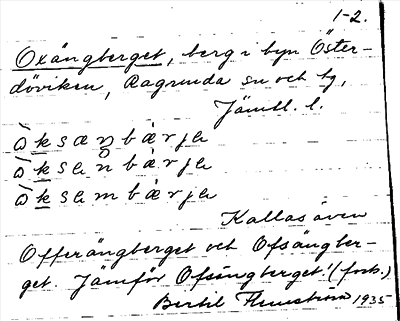 1-2.
Oxängberget, berg i byn Öster-
döviken, Ragunda sn och tg,
Jämtl. l.
Kallas även
Offerängberget och Ofsängber-
get. Jämför Ofsängberget! (forts.)
Bertil Flemström 1935